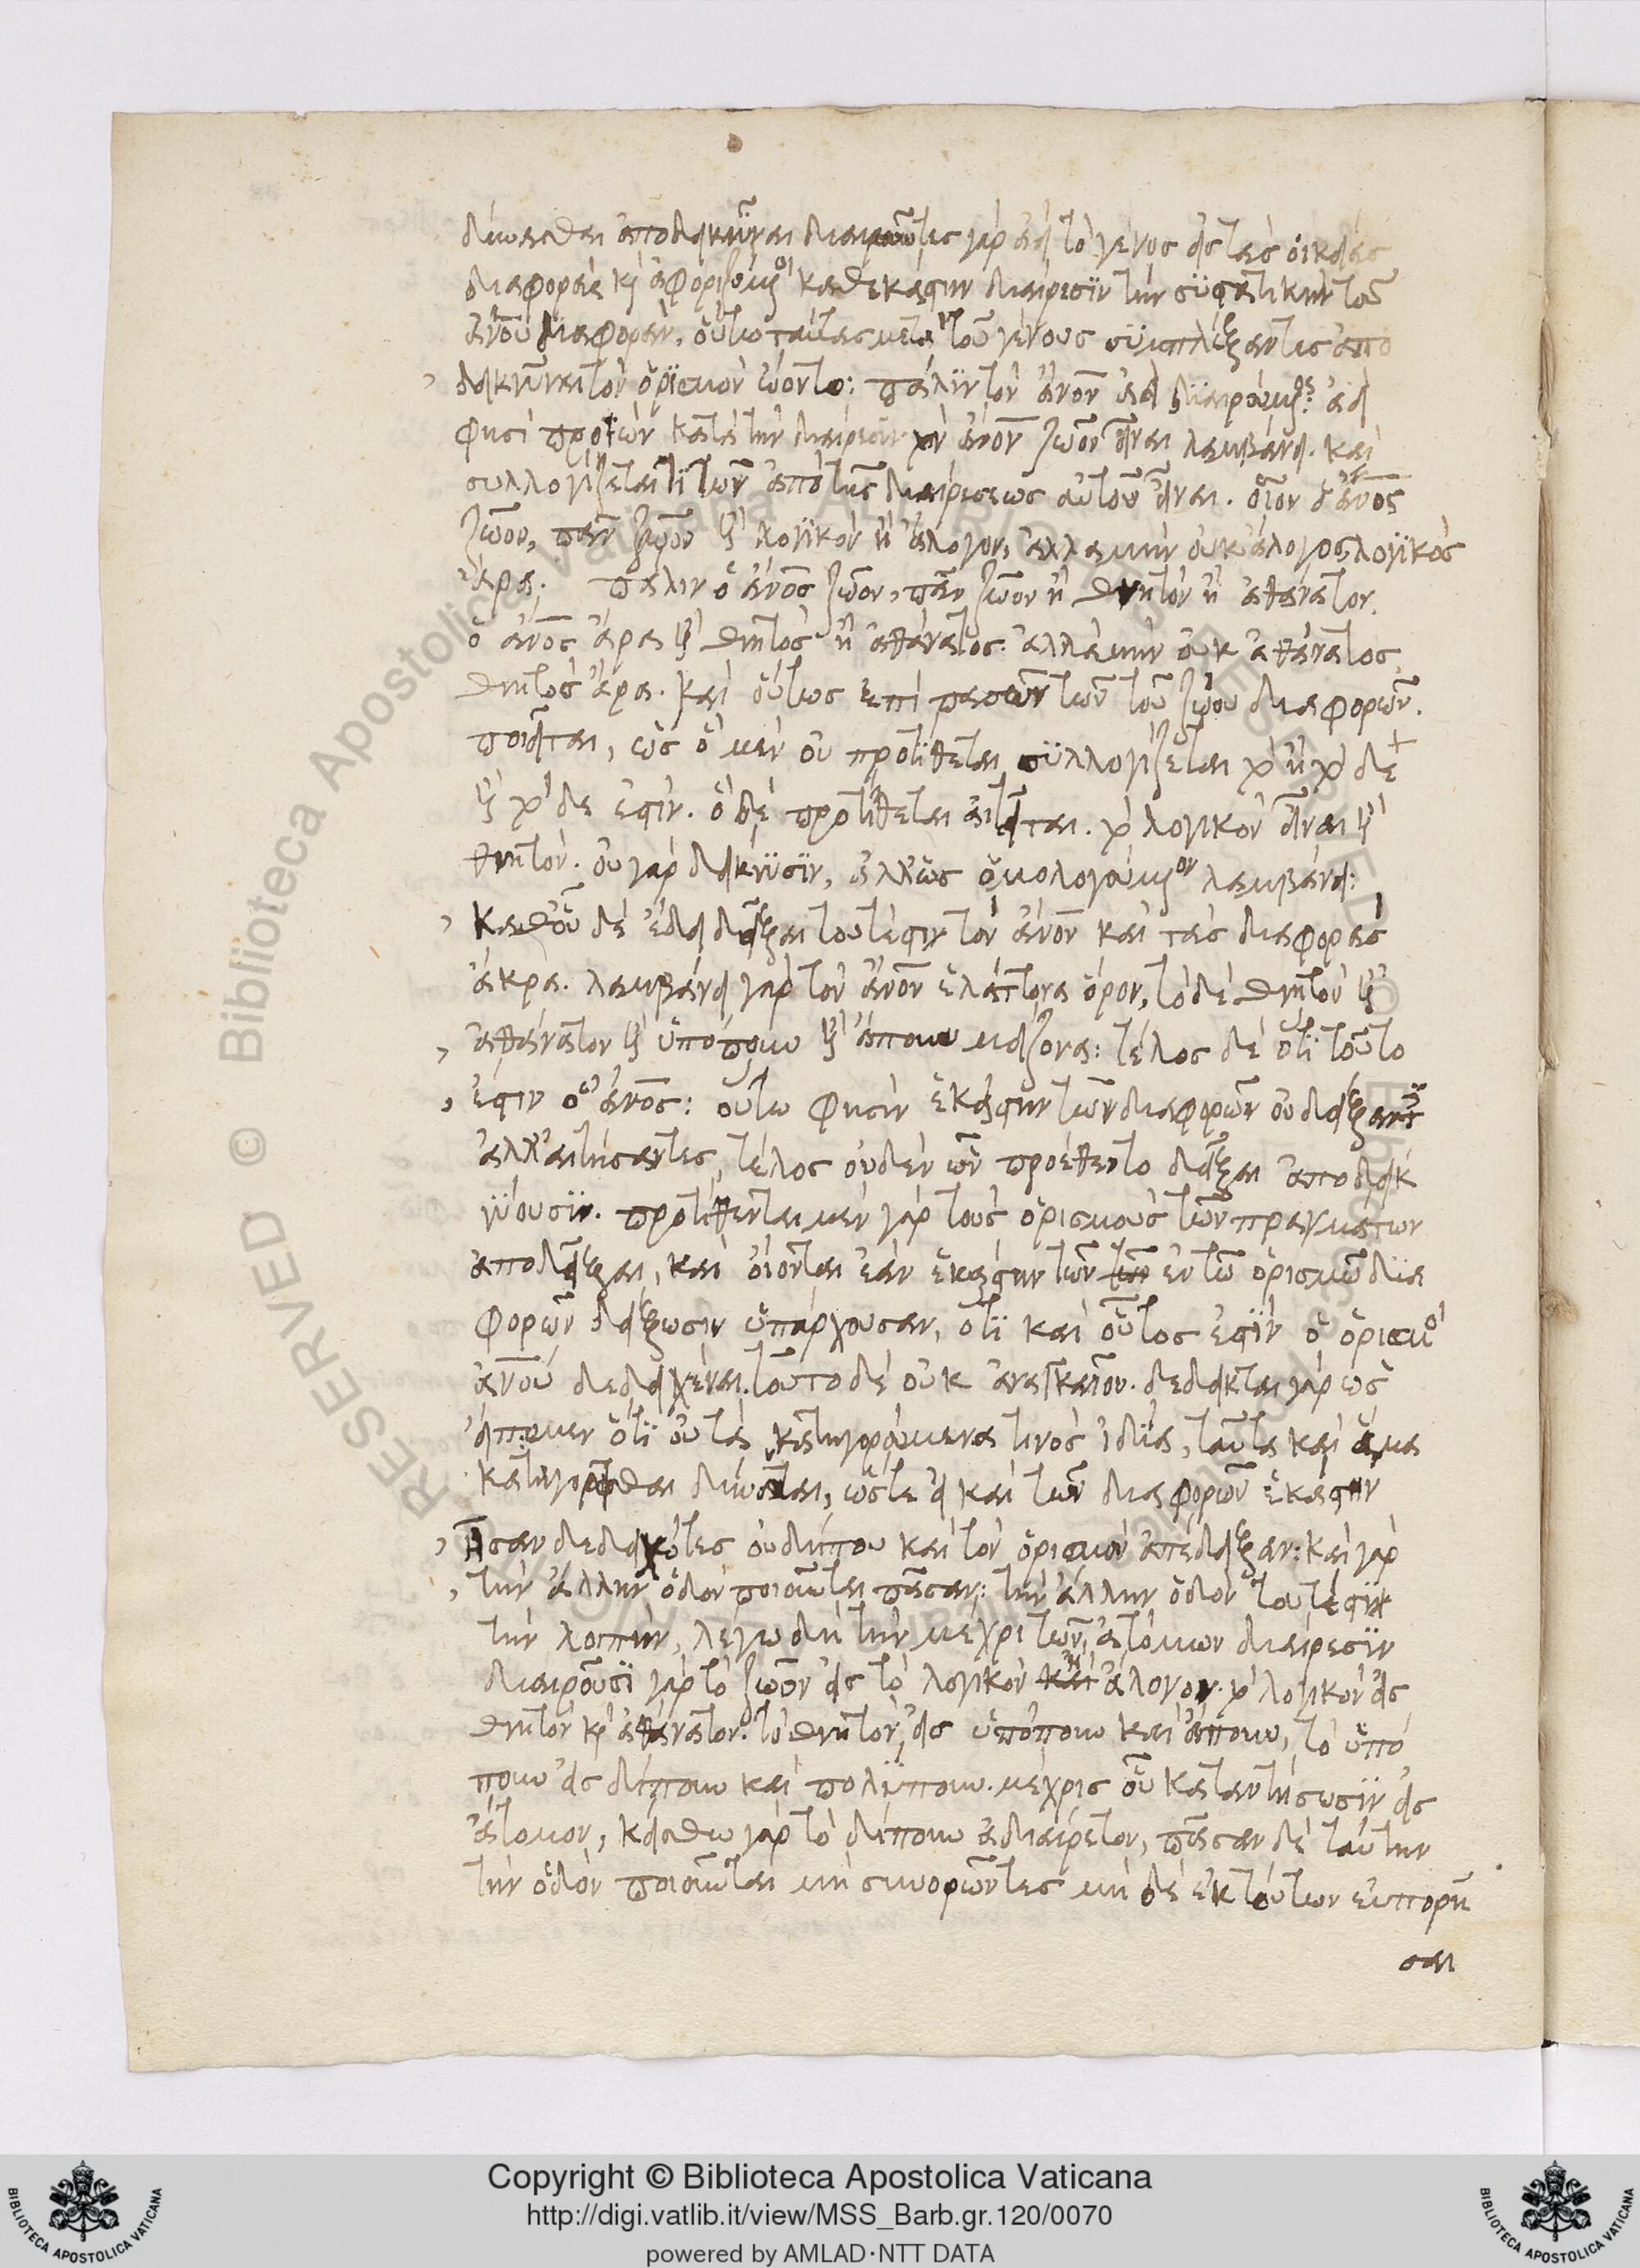 δύνασθαι ἀποδεικνύναι διαιροῦντες γὰρ ἀεὶ τὸ γένος εἰς τὰς οἰκείας
διαφορὰς κὶ ἀφοριζόμενοι καθεκάστην διαίρεσϊν τὴν σϋστατικὴν τοῦ
ἀνοῦ διαφορὰν, οὕτω ταύτας μετὰ τοῦ γένους σϋμπλέξαντες ἀπο
δεικνῦναι τὸν ὁρϊσμὸν ᾤοντο: πάλϊν τὸν ἄνον ἀεὶ δϊαιρούμενος: ἀεὶ
φησὶ προϊὼν κατὰ τὴν διαίρεσϊν τὸν ἄνον ζῶον εἶναι λαμβάνει. καὶ
συλλογίζεταί τϊ τῶν ἀπὸ τῆς διαιρέσεως αὐτοῦ εἶναι. οἷον ὁ ἄνος
ζῶον, πᾶν ζῶον ἢ λογϊκὸν ἢ ἄλογον, ἀλλα μὴν οὐκ ἄλογος λογϊκὸς
ἄρα. πάλιν ὁ ἄνος ζῶον, πᾶν ζῶον ἢ θνητὸν ἢ ἀθάνατον.
ὁ ἄνος ἄρα ἢ θνητὸς ἢ ἀθάνατος. ἀλλὰ μὴν οὐκ ἀθάνατος
θνητὸς ἄρα. καὶ οὕτως ἐπὶ πασῶν τῶν τοῦ ζώου διαφορῶν.
ποιεῖται, ὡς ὃ μὲν οὐ προτϊθεται σϋλλογίζεται τὸ ἢ τὸ δε
ἢ τὸ δε ἐστίν. ὃ δὲ προτίθεται αἰτεῖται. τὸ λογικὸν εἶναι ἢ
θνητὸν. οὐ γὰρ δεικνϋσϊν, ἀλλ' ὡς ὁμολογούμενον λαμβάνει:
Καθοῦ δὲ ἔδει δεῖξαι τουτέστιν τὸν ἄνον καὶ τὰς διαφορὰς
ἄκρα. λαμβάνει γὰρ τὸν ἄνον ἐλάττονα ὅρον, τὸ δὲ θνητὸν ἢ
ἀθάνατον ἢ ὑπόπουν ἢ ἄπουν μείζονα: τέλος δὲ ὅτϊ τοῦτο
ἐστιν ὁ ἄνος: οὕτω φησὶν ἑκάστην τῶν διαφορῶν οὐ δείξαντες
ἀλλ' αἰτήσαντες, τέλος οὐδὲν ὧν προέθεντο δεῖξαι ἀποδεικ
νϋουσϊν. προτίθενται μὲν γὰρ τοὺς ὁρισμοὺς τῶν πραγμάτων
ἀποδεῖξαι, καὶ οἴονται ἐὰν ἑκάστην τῶν ἐν τῶ ὁρισμῶ δϊα
φορῶν δείξωσιν ὑπάρχουσαν, ὅτϊ καὶ οὗτος ἐστϊν ὁ ὁρισμὸς
ἀνοῦ δεδειχέναι. τοῦτο δὲ οὐκ ἀναγκαῖον. δέδεικται γὰρ ὡς
εἴπομεν ὅτϊ οὐ τὰ κατηγορούμενα τινὸς ἰδϊα, ταῦτα καὶ ἅμα
κατηγορεῖσθαι δύναται, ὥστε εἰ καὶ τῶν διαφορῶν ἑκάστην
ἦσαν δεδειχότες οὐδήπου καὶ τὸν ὁρισμὸν ἀπέδειξαν: καὶ γὰρ
τὴν ἄλλην ὁδὸν ποιοῦνται πᾶσαν: τὴν ἄλλην ὁδὸν τουτέστϊν
τὴν λοιπὴν, λέγω δὴ τὴν μέχρι τῶν ἀτόμων διαίρεσϊν
διαιροῦσϊ γὰρ τὸ ζῶον εἰς τὸ λογικὸν κ' ἄλογον. τὸ λογικὸν εἰς
θνητὸν κ' ἀθάνατον. τὸ θνητὸν, εἰς ὑπόπουν καὶ ἄπουν, τὸ ὑπό
πουν εἰς δίπουν καὶ πολϋπουν. μέχρις οὗ καταντήσωσϊν εἰς
ἄτομον, κείσθω γὰρ τὸ δίπουν ἀδιαίρετον, πᾶσαν δὲ ταύτην
τὴν ὁδὸν ποιοῦνται μὴ συνορῶντες μὴ δὲ ἐκ τούτων εὐπορῆ
σαι
Copyright © Biblioteca Apostolica Vaticana
http://digi.vatlib.it/view/MSS_Barb.gr.120/0070
powered by AMLAD·NTT DATA